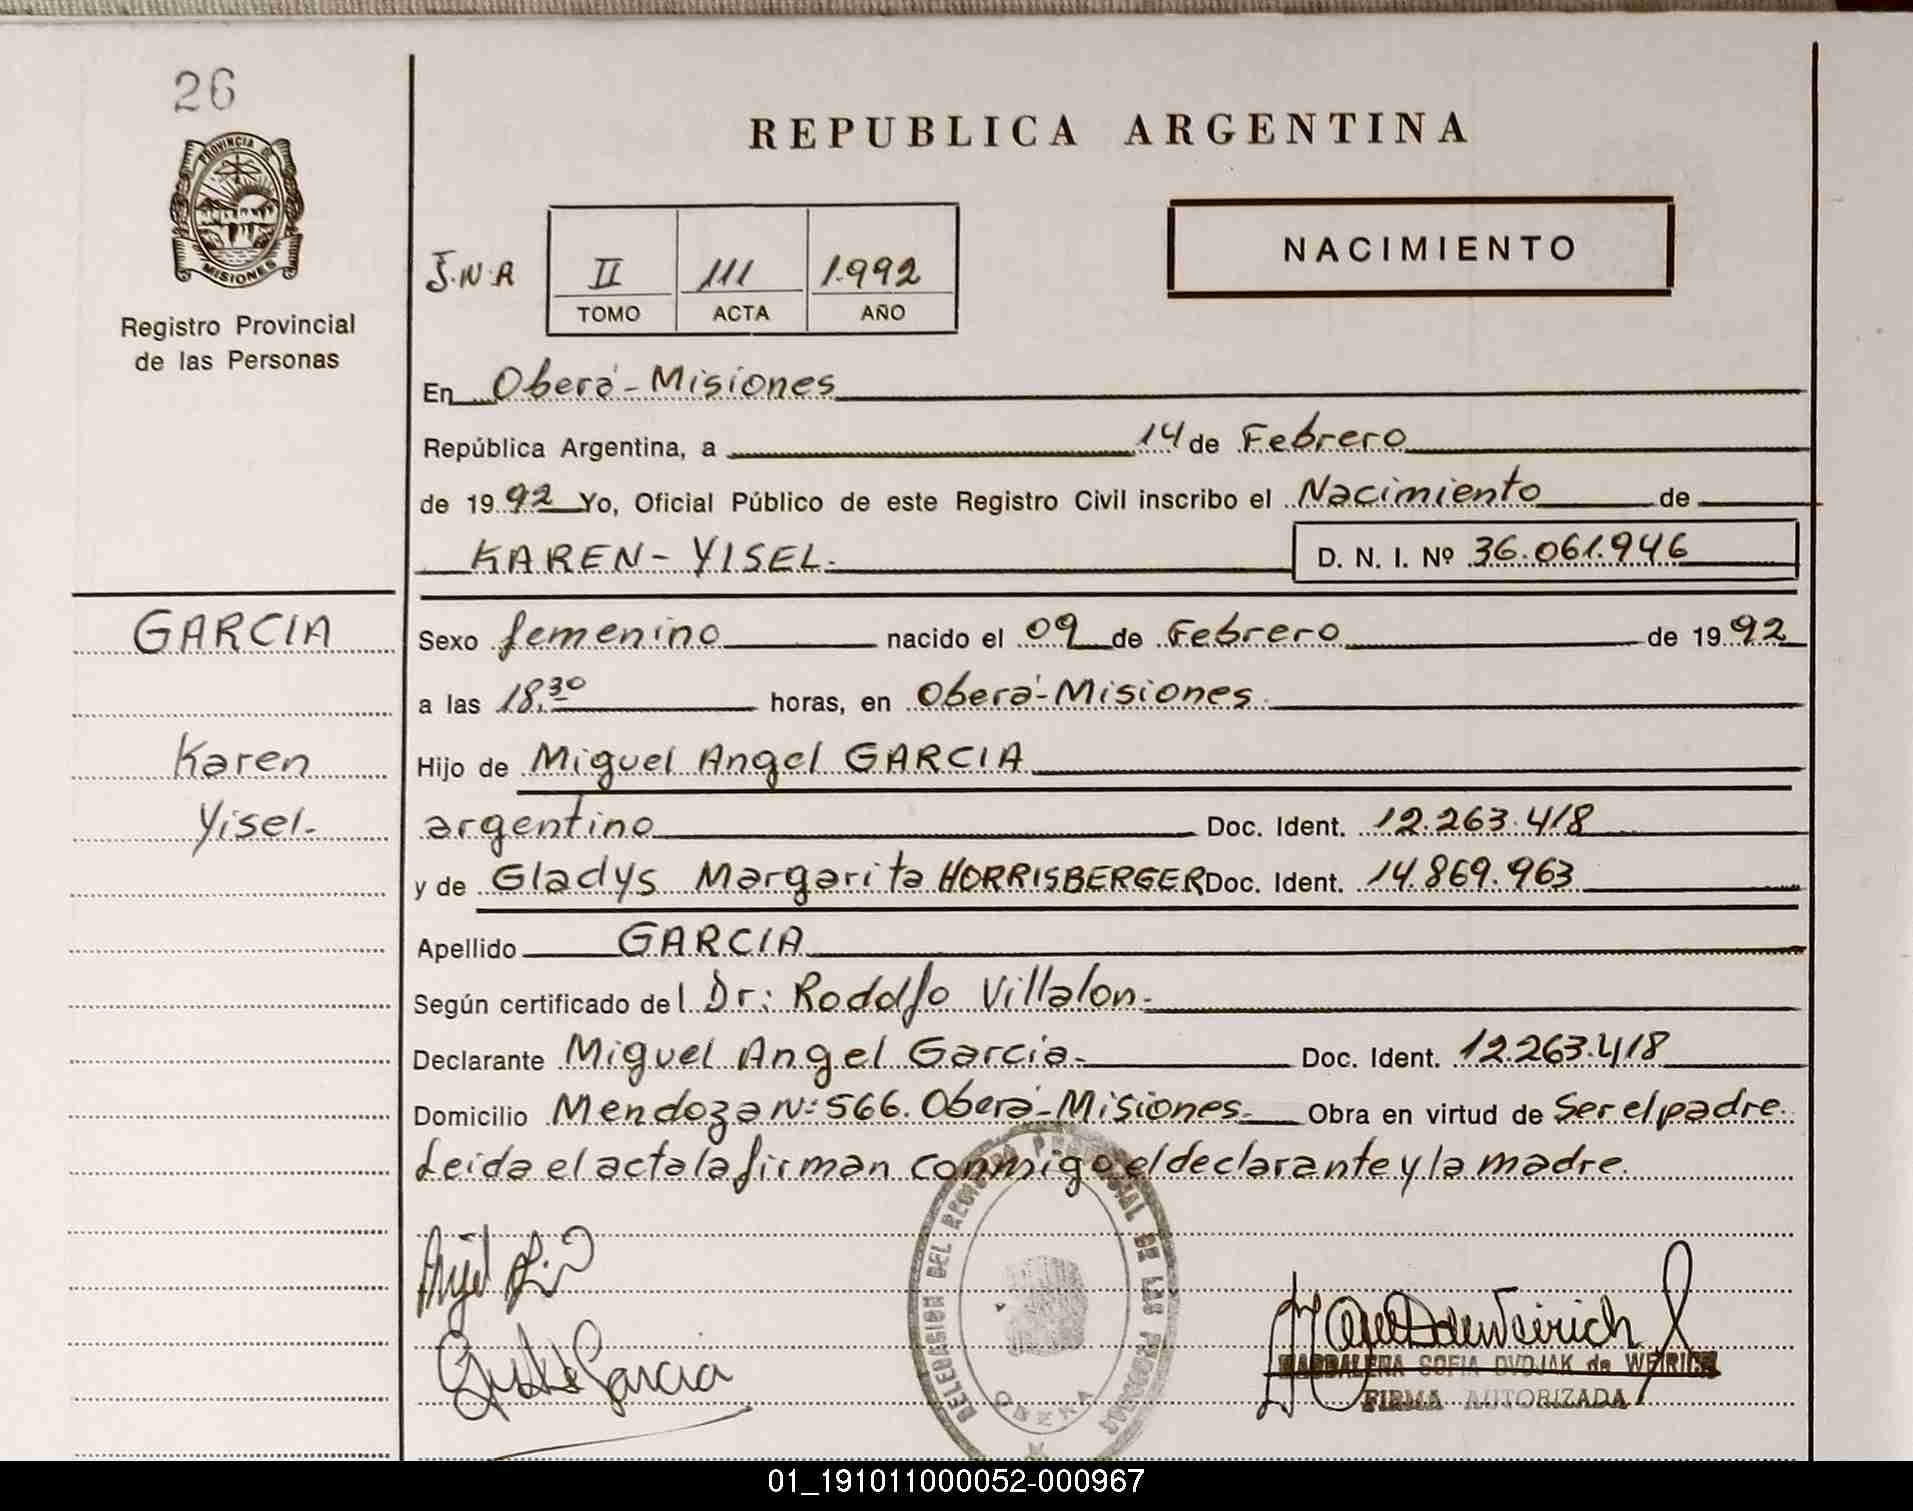 26
PROVINCIA DE
MISIONES
Registro Provincial
de las Personas
REPUBLICA ARGENTINA
NACIMIENTO
J.N.A
II 111 1.992
TOMO ACTA AÑO
En Oberá - Misiones
República Argentina, a 14 de Febrero
de 1992 Yo, Oficial Público de este Registro Civil inscribo el Nacimiento de
KAREN - YISEL. D. N. I. Nº 36.061.946
GARCIA
Karen
Yisel.
Sexo femenino nacido el 09 de Febrero de 1992
a las 18,30 horas, en Oberá - Misiones.
Hijo de Miguel Angel GARCIA
argentino Doc. Ident. 12.263.418
y de Gladys Margarita HORRISBERGER Doc. Ident. 14.869.963
Apellido GARCIA
Según certificado del Dr: Rodolfo Villalon.
Declarante Miguel Angel Garcia. Doc. Ident. 12.263.418
Domicilio Mendoza Nº 566. Oberá - Misiones. Obra en virtud de Ser el padre.
Leida el acta la firman conmigo el declarante y la madre.
DELEGASION DEL REGISTRO PROVINCIAL DE LAS PERSONAS
OBERA
Garcia
MAGDALENA SOFIA DVOJAK de WEIRICH
FIRMA AUTORIZADA
01_191011000052-000967